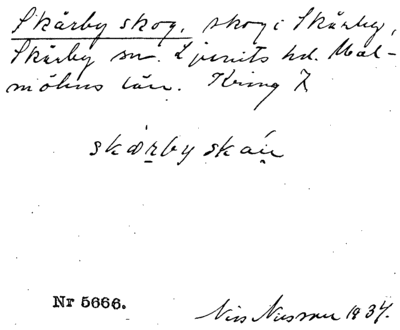 Skårby skog, skog i Skårby,
Skårby sn. Ljunits hd. Mal-
möhus län. Kring 7
skårby skáu
Nr 5666.
Nils Nilsson 1934.